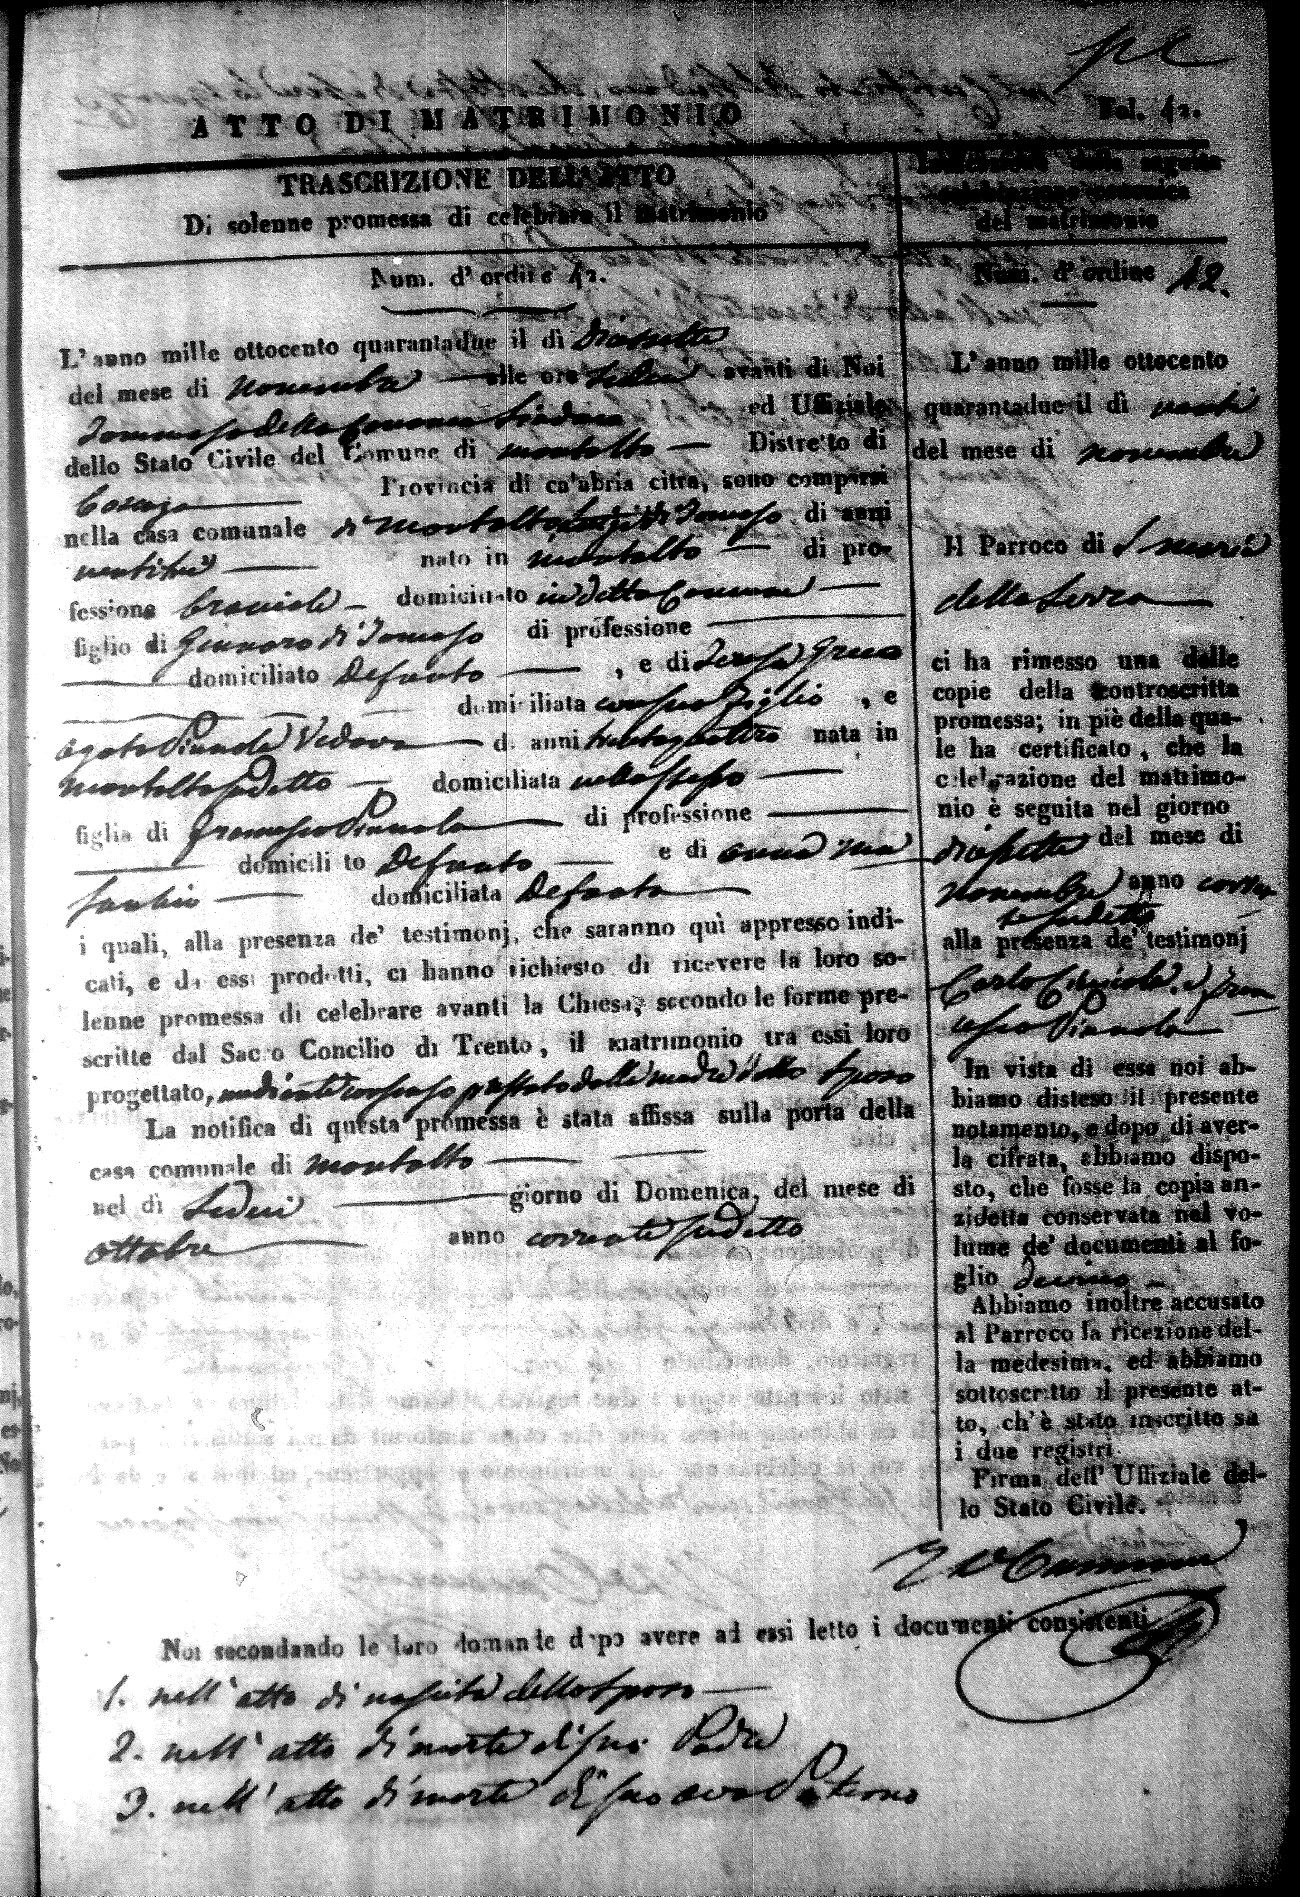 ATTO DI MATRIMONIO
Fol. 42.
TRASCRIZIONE DELL'ATTO
Di solenne promessa di celebrare il matrimonio
Num. d'ordine 42.
L'anno mille ottocento quarantadue il dì diciassette
del mese di novembre alle ore sedici avanti di Noi
Tommaso della Cananea Sindaco ed Uffiziale
dello Stato Civile del Comune di montalto Distretto di
Cosenza Provincia di calabria citra, sono comparsi
nella casa comunale di montalto Luigi di Tomaso di anni
ventitre nato in montalto di pro-
fessione bracciale domiciliato in detto Comune
figlio di Gennaro di Tomaso di professione
domiciliato Defunto , e di Teresa Greco
domiciliata con suo figlio , e
agata Pianola Vedova di anni trentaquattro nata in
montalto sudetto domiciliata nello stesso
figlia di Francesco Pianola di professione
domiciliato Defunto e di anna ma
domiciliata Defunta
i quali, alla presenza de' testimonj, che saranno quì appresso indi-
cati, e da essi prodotti, ci hanno richiesto di ricevere la loro so-
lenne promessa di celebrare avanti la Chiesa, secondo le forme pre-
scritte dal Sacro Concilio di Trento, il matrimonio tra essi loro
progettato, mediante consenso prestato dalla madre dello Sposo
La notifica di questa promessa è stata affissa sulla porta della
casa comunale di montalto
nel dì sedici giorno di Domenica, del mese di
ottobre anno corrente sudetto
della seguita
celebrazione canonica
del matrimonio
Num. d'ordine 42.
L'anno mille ottocento
quarantadue il dì venti
del mese di novembre
Il Parroco di S maria
della Serra
ci ha rimesso una delle
copie della controscritta
promessa; in piè della qua-
le ha certificato, che la
celebrazione del matrimo-
nio è seguita nel giorno
diciassette del mese di
novembre anno corren
te sudetto
alla presenza de' testimonj
Carlo e Fran
cesco Pianola
In vista di essa noi ab-
biamo disteso il presente
notamento, e dopo di aver-
la cifrata, abbiamo dispo-
sto, che fosse la copia an-
zidetta conservata nel vo-
lume de' documenti al fo-
glio
Abbiamo inoltre accusato
al Parroco la ricezione del-
la medesima, ed abbiamo
sottoscritto il presente at-
to, ch'è stato inscritto su
i due registri.
Firma dell' Uffiziale del-
lo Stato Civile.
Noi secondando le loro domande dopo avere ad essi letto i documenti consistenti
1. nell'atto di nascita dello Sposo
2. nell'atto di morte di suo Padre
3. nell'atto di morte di suo avo Paterno